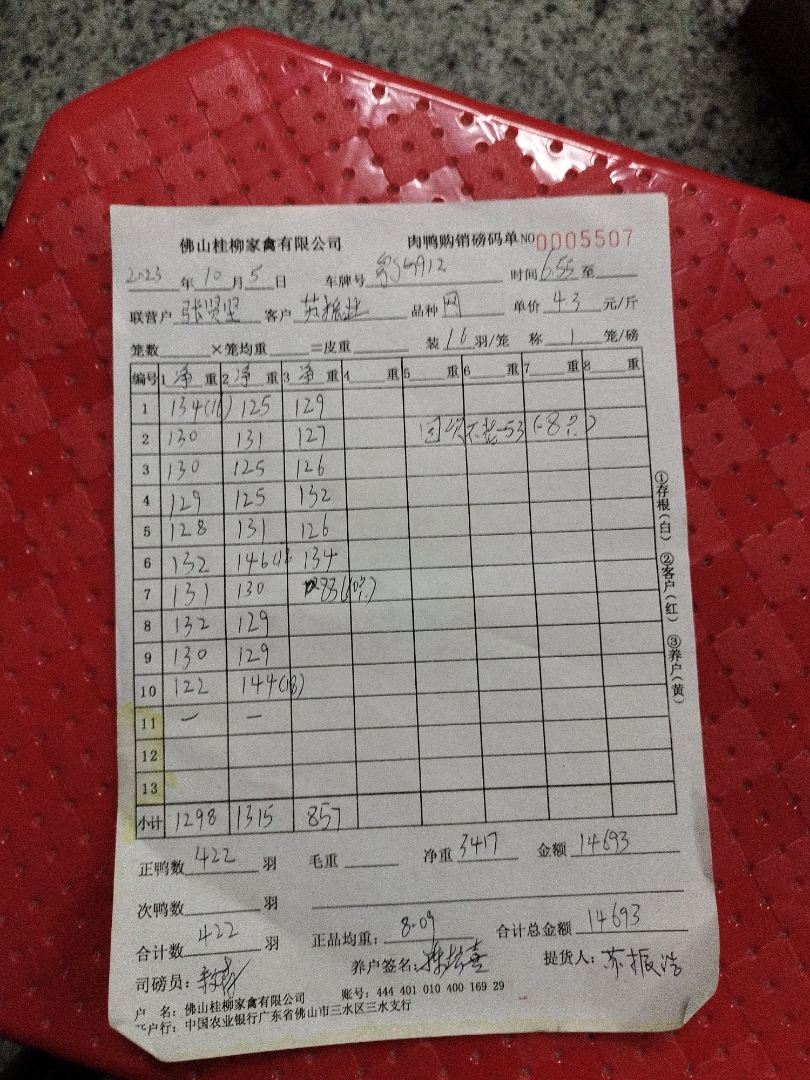 佛山桂柳家禽有限公司 肉鸭购销磅码单 NO 0005507
2023 年 10 月 5 日 车牌号 时间 6.55 至
联营户 张贤坚 客户 品种 网 单价 4.3 元/斤
笼数 ×笼均重 =皮重 装 16 羽/笼 称 1 笼/磅
编号 1 净 重 2 净 重 3 净 重 4 重 5 重 6 重 7 重 8 重
1 134(16) 125 129
2 130 131 127 -53 (-8只)
3 130 125 126
4 129 125 132
5 128 131 126
6 132 146(18 134
7 131 130 83(10只)
8 132 129
9 130 129
10 122 144(18)
11 — —
12
13
小计 1298 1315 857
正鸭数 422 羽 毛重 净重 3417 金额 14693
次鸭数 羽
合计数 422 羽 正品均重: 8.09 合计总金额 14693
司磅员: 养户签名: 提货人: 苏振浩
户 名: 佛山桂柳家禽有限公司 账号: 444 401 010 400 169 29
开户行: 中国农业银行广东省佛山市三水区三水支行
①存根(白) ②客户(红) ③养户(黄)